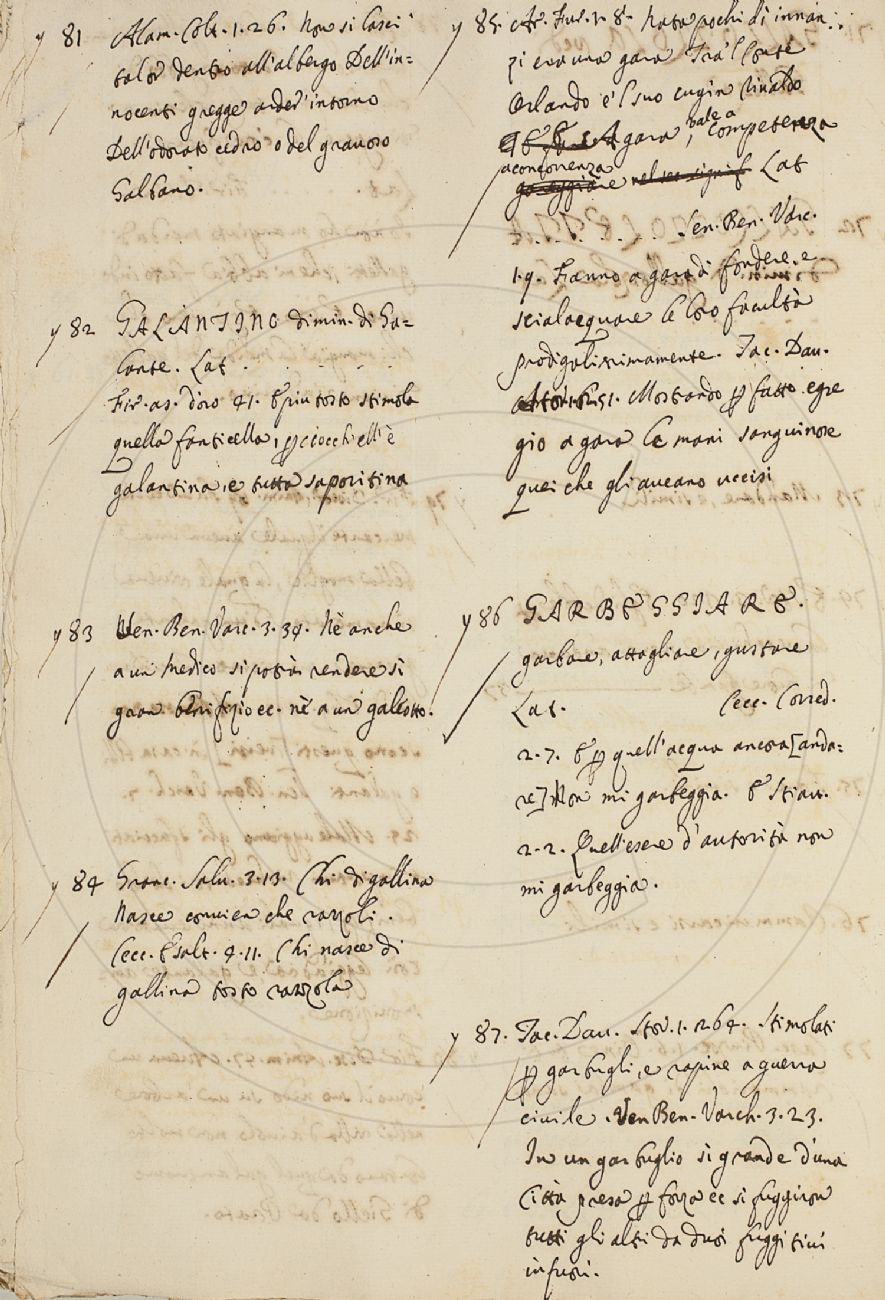 y 81 Alam. Colt. 1.26. Non si lasci
talor dentro all'albergo Dell'in=
nocenti gregge arder' intorno
Dell'odorato cedro o del gravoso
Galbano.
y 82 GALANTINO dimin. di Ga=
lante. Lat. . . . .
Fir. as. d'oro 41. E piu tosto stimola
quella fanticella, p ciocch ell'è
galantina, e tutta saporitina
y 83 Sen. Ben. Varc. 3.34. Nè anche
a un medico si potrà rendere sì
gran benifizio ec. nè a un galeotto.
y 84 Granc. Salv. 3.13. Chi di gallina
nasce convien che razzoli.
Cecc. Esalt. 4.11. Chi nasce di
gallina tosto razzola
y 85. Ar. Fur. 1. 8. Nata pochi dì innan..
zi era una gara Tra'l Conte
Orlando e'l suo cugin Rinaldo
A gara, vale a competenza
a concorrenza
Lat
. . . . . . Sen. Ben. Varc.
1.9. Fanno a gara di fondere, e
scialacquare le loro facultà
prodigalissimamente. Tac. Dav.
51. Mostrando p fatto egre
gio a gara le mani sanguinose
quei che gli aveano uccisi
y 86 GARBEGGIARE.
garbare, attagliare, gustare
Lat. Cecc. Corred.
2.7. E p quell'acqua ancora [anda=
re] Non mi garbeggia. E Stiav.
2.2. Quell'essere d'autorità non
mi garbeggia.
y 87. Tac. Dav. Stor. 1.264. Stimolati
p garbugli, e rapine a guerra
civile. Sen Ben. Varch. 3.23.
In un garbuglio sì grande d'una
Città presa p forza ec si fuggiron
tutti gli altri da dua fuggitivi
in fuori.